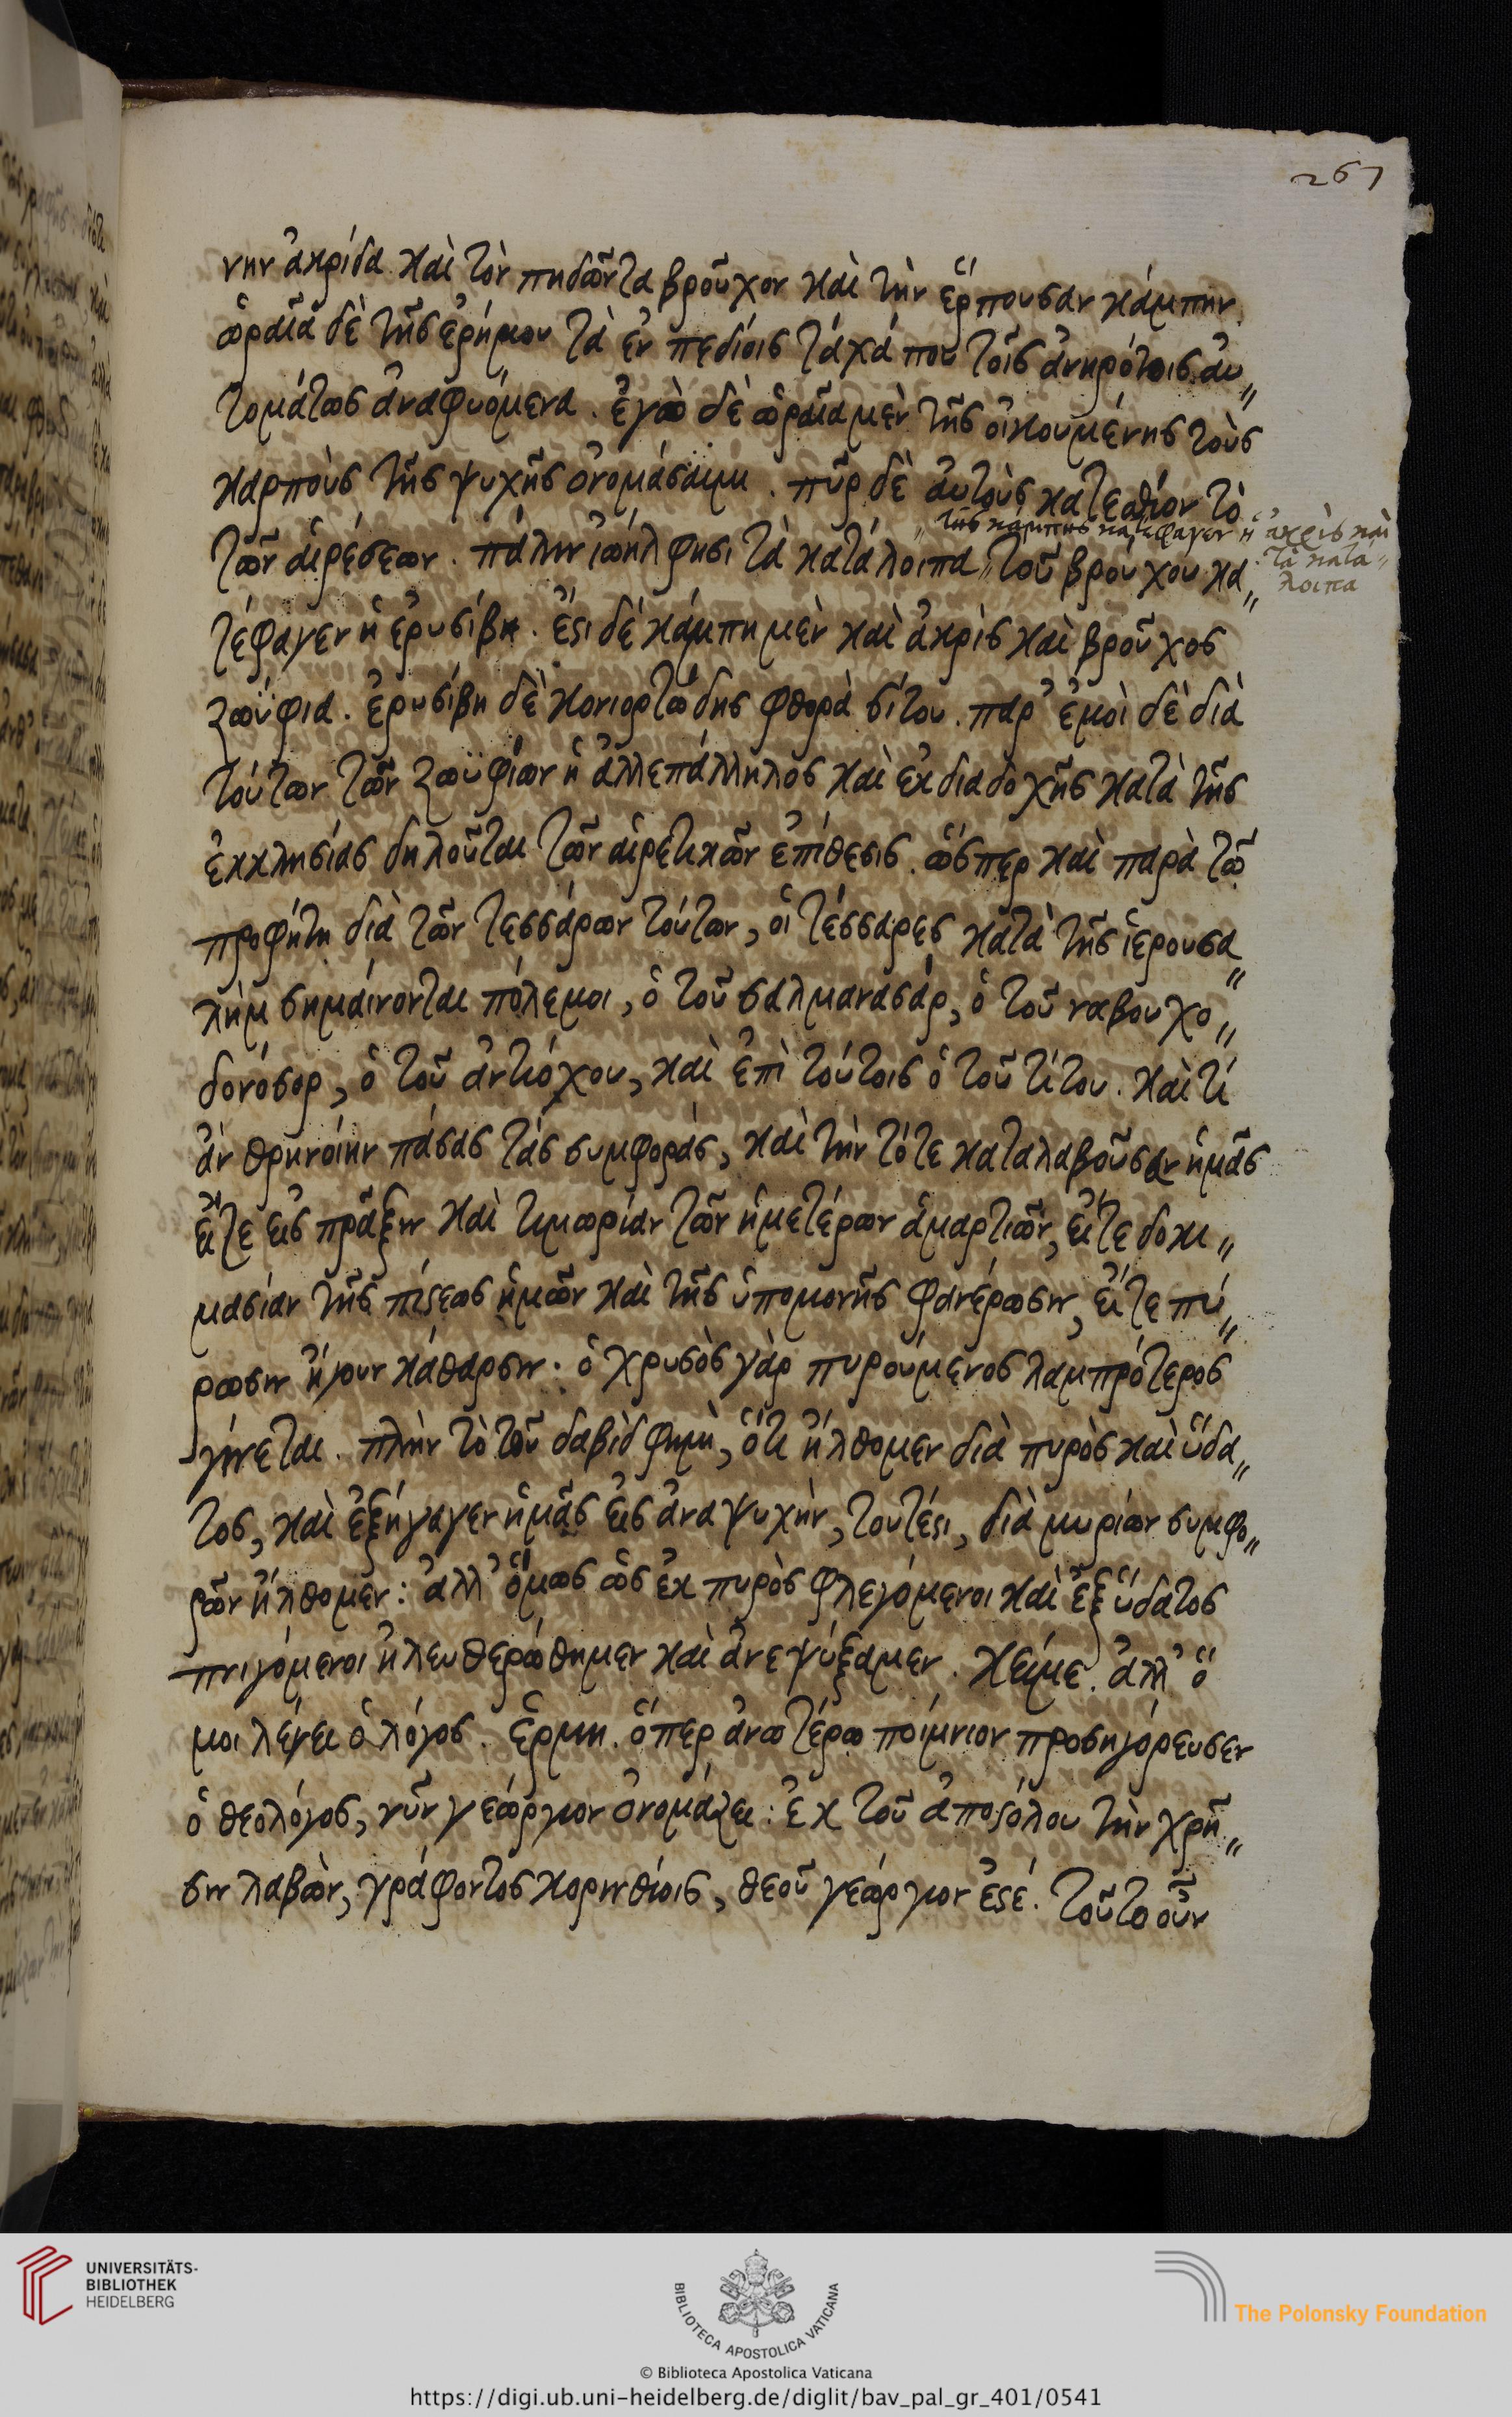 267
νην ἀκρίδα καὶ τὸν πηδῶντα βροῦχον καὶ τὴν ἕρπουσαν κάμπην.
ὡραῖα δὲ τῆς ἐρήμου τὰ ἐν πεδίοις τάχά που τοῖς ἀνηρότοις αὐ
τομάτως ἀναφυόμενα. ἐγὼ δὲ ὡραῖα μὲν τῆς οἰκουμένης τοὺς
καρπους τῆς ψυχῆς ὀνομάσαιμι. πῦρ δὲ αὐτοὺς κατεσθίον τὸ
τῆς κάμπης κατέφαγεν ἡ ἀκρὶς καὶ
τὰ κατά
λοιπα
τῶν αἱρέσεων. πάλιν ἰωήλ φησι τὰ κατάλοιπα τοῦ βρούχου κα
τέφαγεν ἡ ἐρυσίβη. ἔστι δὲ κάμπη μὲν καὶ ἀκρὶς καὶ βροῦχος
ζωΰφια. ἐρυσίβη δὲ κονιορτώδης φθορὰ σίτου. παρ' ἐμοὶ δὲ διὰ
τούτων τῶν ζωϋφίων ἡ ἀλλεπάλληλος καὶ ἐκ διαδοχῆς κατὰ τῆς
ἐκκλησίας δηλοῦται τῶν αἱρετικῶν ἐπίθεσις. ὥσπερ καὶ παρὰ τῶ
προφήτη διὰ τῶν τεσσάρων τούτων, οἱ τέσσαρες κατὰ τῆς ἱερουσα
λὴμ σημαίνονται πόλεμοι, ὁ τοῦ σαλμανασάρ, ὁ τοῦ ναβουχο
δονόσορ, ὁ τοῦ ἀντιόχου, καὶ ἐπὶ τούτοις ὁ τοῦ τίτου. καὶ τί
ἂν θρηνοίην πάσας τὰς συμφοράς, καὶ τὴν τότε καταλαβοῦσαν ἡμᾶς
εἴτε εἰς πρᾶξιν καὶ τιμωρίαν τῶν ἡμετέρων ἁμαρτιῶν, εἴτε δοκι
μασίαν τῆς πίστεως ἡμῶν καὶ τῆς ὑπομονῆς φανέρωσιν, εἴτε πύ
ρωσιν ἤγουν κάθαρσιν. ὁ χρυσὸς γὰρ πυρούμενος λαμπρότερος
γίνεται. πλὴν τὸ τοῦ δαβὶδ φημὶ, ὅτι ἤλθομεν διὰ πυρὸς καὶ ὕδα
τος, καὶ ἐξήγαγεν ἡμᾶς εἰς ἀναψυχὴν, τουτέστι, διὰ μυρίων συμφο
ρῶν ἤλθομεν: ἀλλ' ὅμως ὡς ἐκ πυρὸς φλεγόμενοι καὶ ἐξ ὕδατος
πνιγόμενοι ἠλευθερώθημεν καὶ ἀνεψύξαμεν. κείμε. ἀλλ' ὅ
μοι λέγει ὁ λόγος. ἑρμη. ὅπερ ἀνωτέρω ποίμνιον προσηγόρευσεν
ὁ θεολόγος, νῦν γεώργιον ὀνομάζει: ἐκ τοῦ ἀποστόλου τὴν χρῆ
σιν λαβὼν, γράφοντος κορινθίοις, θεοῦ γεώργιον ἐστέ. τοῦτο οὖν
UNIVERSITÄTS-
BIBLIOTHEK
HEIDELBERG
BIBLIOTECA APOSTOLICA VATICANA
The Polonsky Foundation
© Biblioteca Apostolica Vaticana
https://digi.ub.uni-heidelberg.de/diglit/bav_pal_gr_401/0541